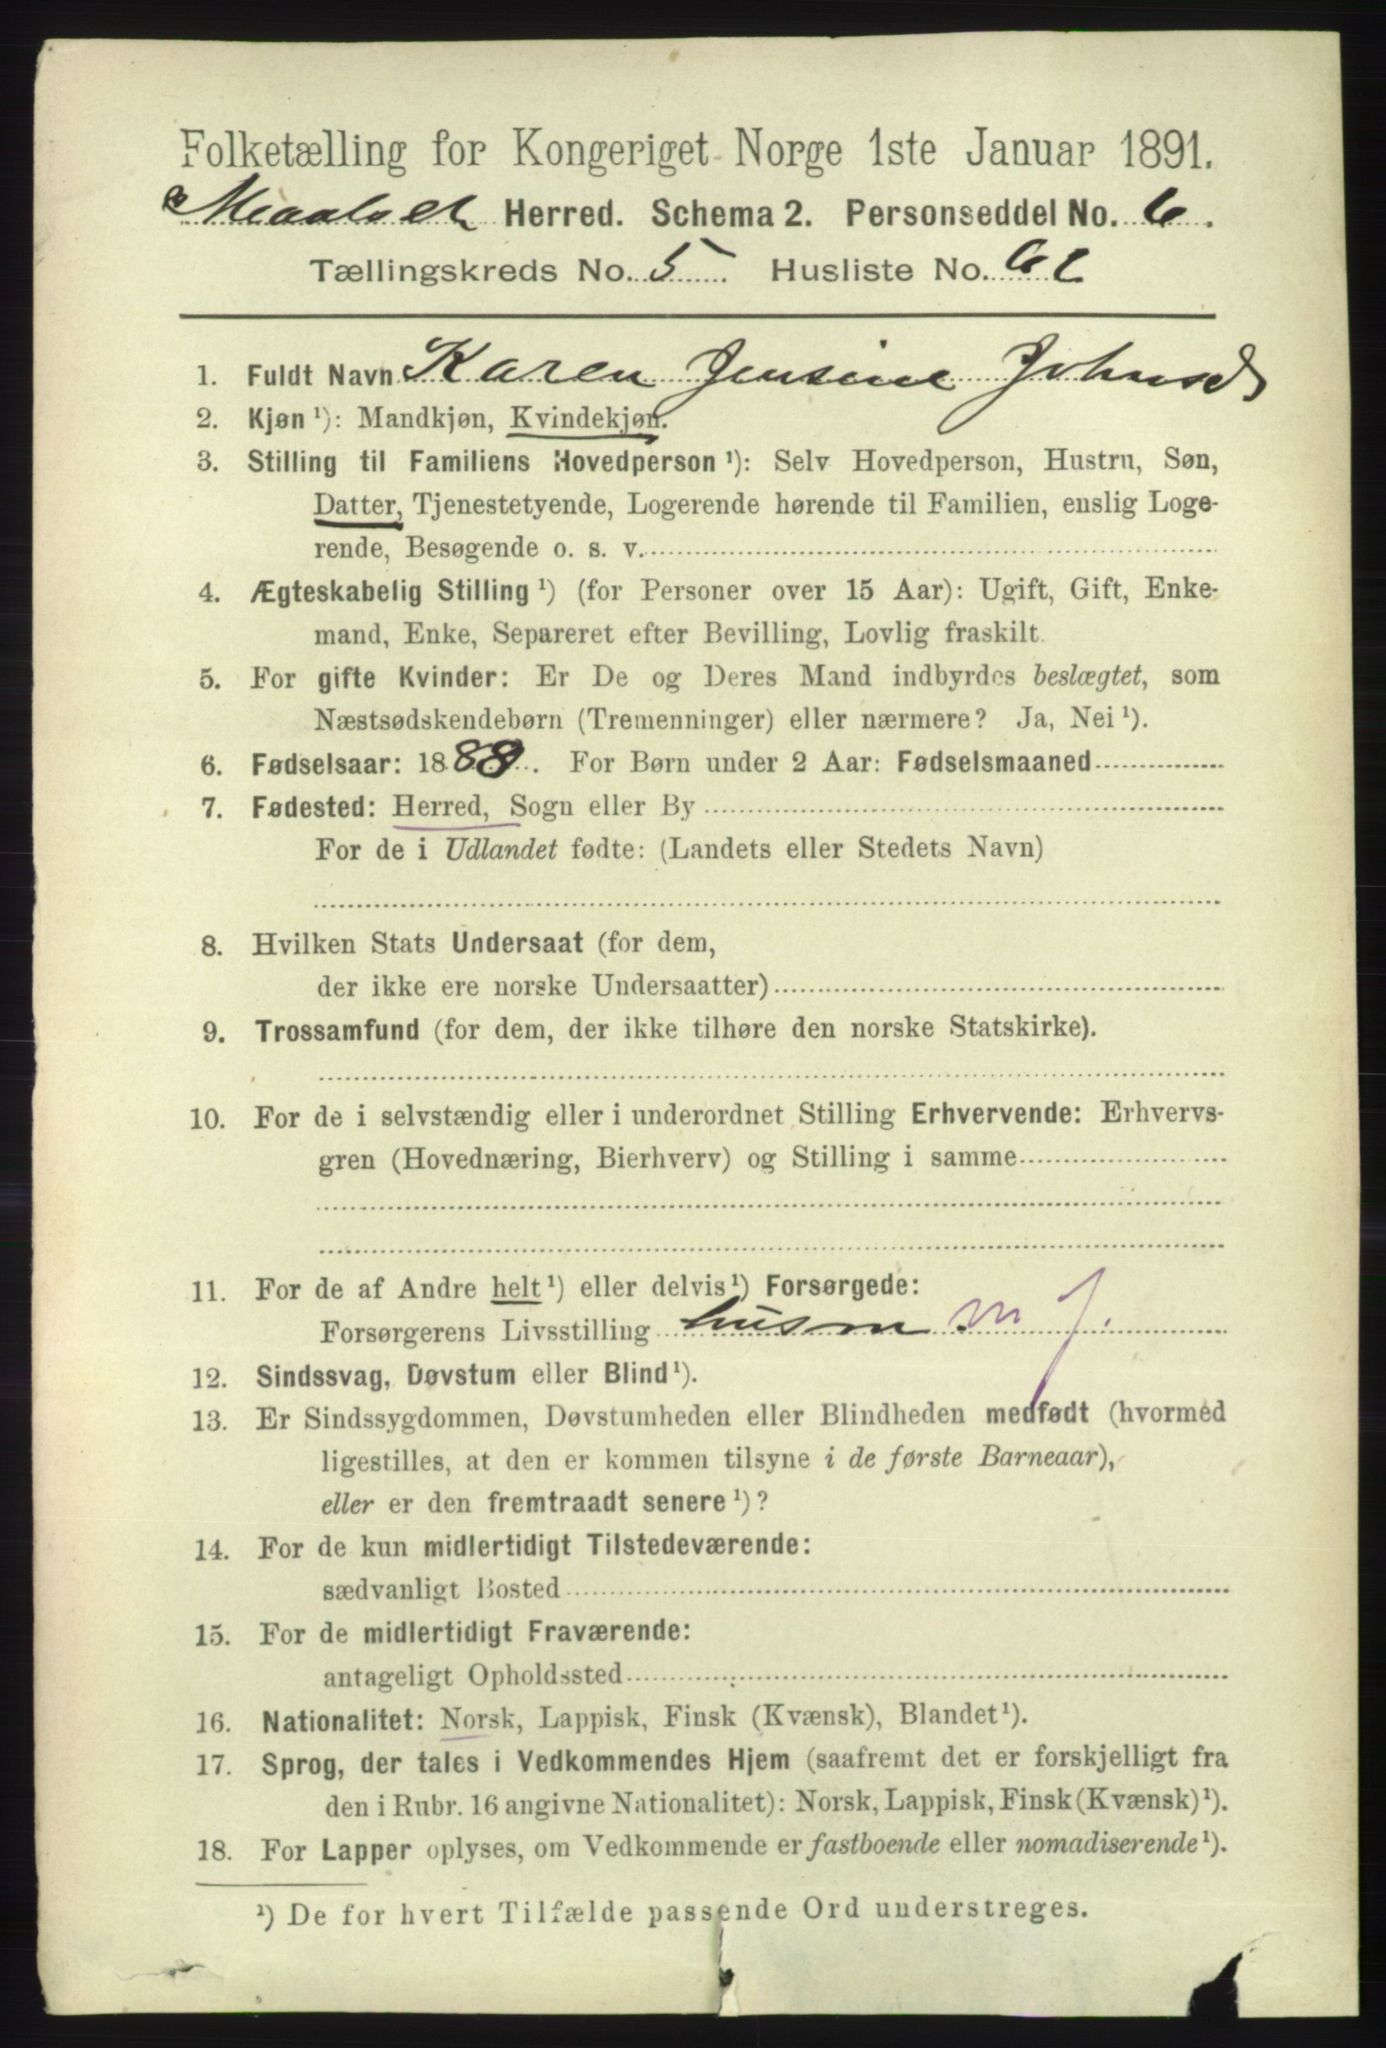 Folketælling for Kongeriget Norge 1ste Januar 1891.
Maalselv Herred. Schema 2. Personseddel No. 6.
Tællingskreds No. 5 Husliste No.
1. Fuldt Navn Karen Jensine Johnsd
2. Kjøn ¹): Mandkjøn, Kvindekjøn.
3. Stilling til Familiens Hovedperson ¹): Selv Hovedperson, Hustru, Søn,
Datter, Tjenestetyende, Logerende hørende til Familien, enslig Loge-
rende, Besøgende o. s. v.
4. Ægteskabelig Stilling ¹) (for Personer over 15 Aar): Ugift, Gift, Enke-
mand, Enke, Separeret efter Bevilling, Lovlig fraskilt
5. For gifte Kvinder: Er De og Deres Mand indbyrdes beslægtet, som
Næstsødskendebørn (Tremenninger) eller nærmere? Ja, Nei ¹).
6. Fødselsaar: 1888. For Børn under 2 Aar: Fødselsmaaned
7. Fødested: Herred, Sogn eller By
For de i Udlandet fødte: (Landets eller Stedets Navn)
8. Hvilken Stats Undersaat (for dem,
der ikke ere norske Undersaatter)
9. Trossamfund (for dem, der ikke tilhøre den norske Statskirke).
10. For de i selvstændig eller i underordnet Stilling Erhvervende: Erhvervs-
gren (Hovednæring, Bierhverv) og Stilling i samme
11. For de af Andre helt ¹) eller delvis ¹) Forsørgede:
Forsørgerens Livsstilling husm m J.
12. Sindssvag, Døvstum eller Blind ¹).
13. Er Sindssygdommen, Døvstumheden eller Blindheden medfødt (hvormed
ligestilles, at den er kommen tilsyne i de første Barneaar),
eller er den fremtraadt senere ¹)?
14. For de kun midlertidigt Tilstedeværende:
sædvanligt Bosted
15. For de midlertidigt Fraværende:
antageligt Opholdssted
16. Nationalitet: Norsk, Lappisk, Finsk (Kvænsk), Blandet ¹).
17. Sprog, der tales i Vedkommendes Hjem (saafremt det er forskjelligt fra
den i Rubr. 16 angivne Nationalitet): Norsk, Lappisk, Finsk (Kvænsk) ¹).
18. For Lapper oplyses, om Vedkommende er fastboende eller nomadiserende ¹).
¹) De for hvert Tilfælde passende Ord understreges.